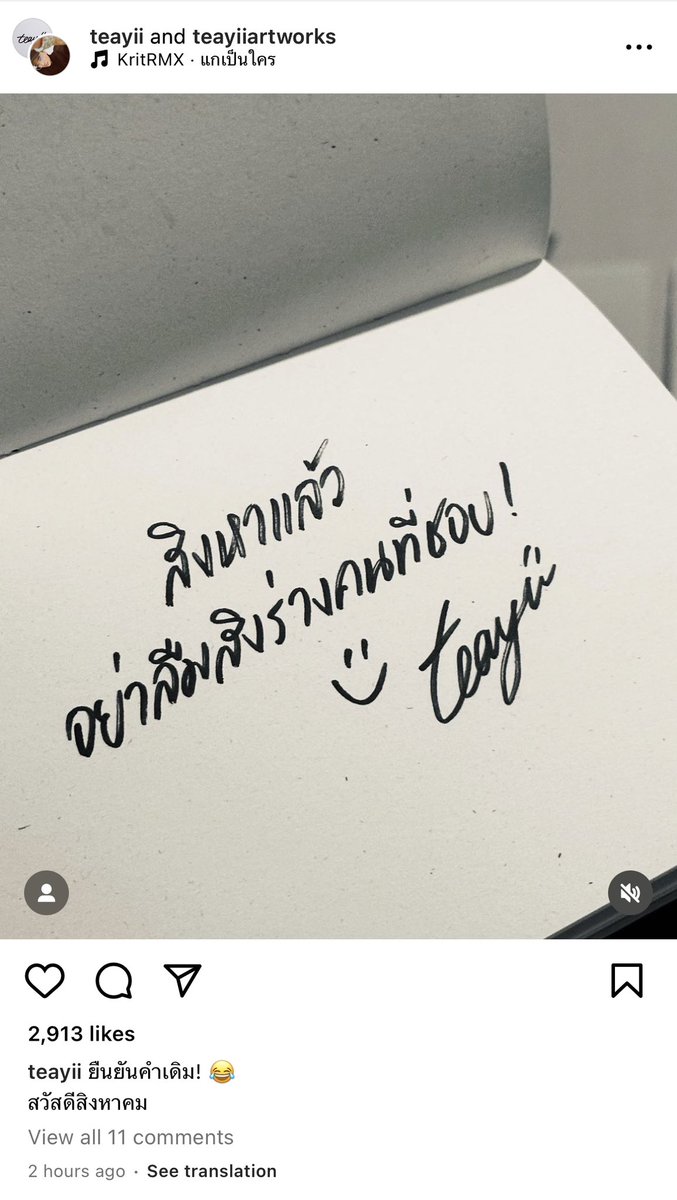 teayii and teayiiartworks
KritRMX · แกเป็นใคร
สิงหาแล้ว
อย่าลืมสิงร่างคนที่ชอบ!
teayii
2,913 likes
teayii ยืนยันคำเดิม! 😂
สวัสดีสิงหาคม
View all 11 comments
2 hours ago · See translation